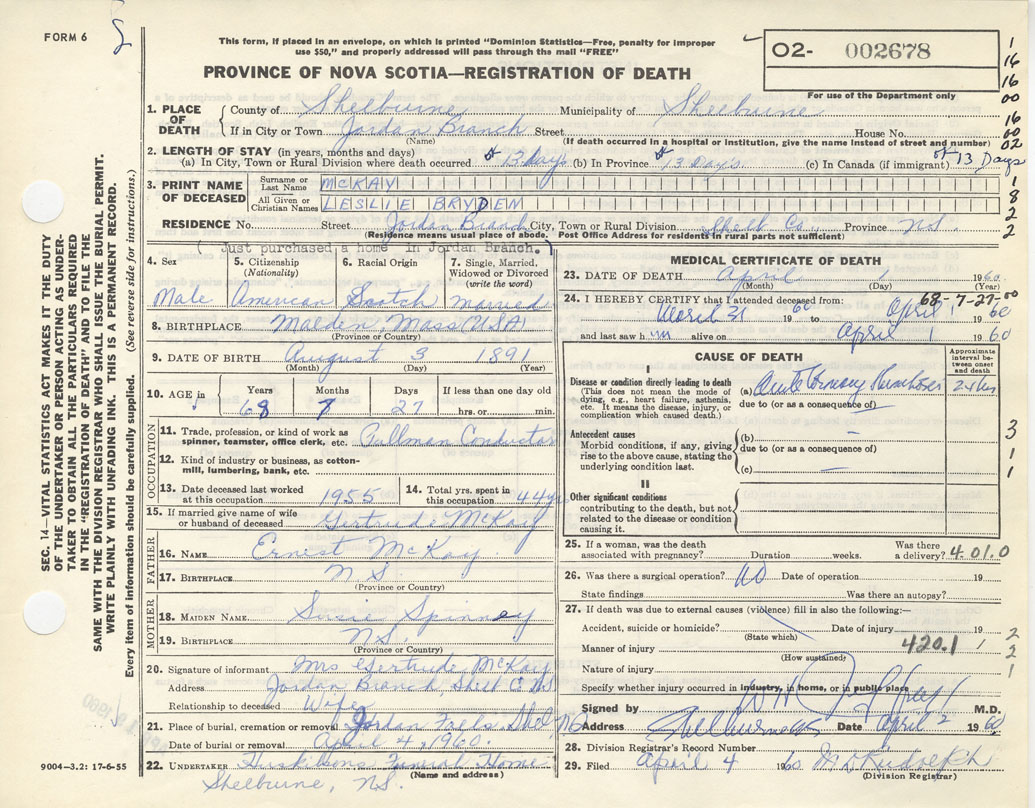 FORM 6
This form, if placed in an envelope, on which is printed "Dominion Statistics—Free, penalty for improper
use $50," and properly addressed will pass through the mail "FREE"
PROVINCE OF NOVA SCOTIA—REGISTRATION OF DEATH
O2- 002678
For use of the Department only
1
16
16
00
16
60
02
1
8
2
2
1. PLACE OF DEATH County of Shelburne Municipality of Shelburne
If in City or Town Jordan Branch Street House No.
(Name) (If death occurred in a hospital or institution, give the name instead of street and number)
2. LENGTH OF STAY (in years, months and days)
(a) In City, Town or Rural Division where death occurred 13 Days (b) In Province 13 Days (c) In Canada (if immigrant) 13 Days
3. PRINT NAME OF DECEASED Surname or Last Name MCKAY
All Given or Christian Names LESLIE BRYDEN
RESIDENCE No. Street Jordan Branch City, Town or Rural Division Shelb Co, Province NS.
(Residence means usual place of abode. Post Office Address for residents in rural parts not sufficient)
( Just purchased a home in Jordan Branch. )
4. Sex 5. Citizenship (Nationality) 6. Racial Origin 7. Single, Married, Widowed or Divorced (write the word)
Male American Scotch married
8. BIRTHPLACE Malden, Mass (USA)
(Province or Country)
9. DATE OF BIRTH August 3 1891
(Month) (Day) (Year)
10. AGE in Years Months Days If less than one day old
68 7 27 hrs. or min.
OCCUPATION
11. Trade, profession, or kind of work as spinner, teamster, office clerk, etc. Pullman Conductor
12. Kind of industry or business, as cotton-mill, lumbering, bank, etc.
13. Date deceased last worked at this occupation 1955 14. Total yrs. spent in this occupation 44 yrs
15. If married give name of wife or husband of deceased Gertrude McKay
FATHER
16. NAME Ernest McKay
17. BIRTHPLACE N S
(Province or Country)
MOTHER
18. MAIDEN NAME Susie Spinney
19. BIRTHPLACE N S.
(Province or Country)
20. Signature of informant Mrs Gertrude McKay
Address Jordan Branch, Shel Co NS
Relationship to deceased Wife
21. Place of burial, cremation or removal Jordan Falls Shel NS
Date of burial or removal April 4, 1960.
22. UNDERTAKER Huskilsons Funeral Home
(Name and address)
Shelburne, NS.
9004—3.2: 17-6-55
MEDICAL CERTIFICATE OF DEATH
23. DATE OF DEATH April 1 1960.
(Month) (Day)
68-7-27-00
24. I HEREBY CERTIFY that I attended deceased from:
March 31 1960 to April 1 1960
and last saw him alive on April 1 1960
CAUSE OF DEATH
Approximate interval between onset and death
I
Disease or condition directly leading to death
(This does not mean the mode of dying, e.g., heart failure, asthenia, etc. It means the disease, injury, or complication which caused death.)
(a) Acute Coronary Thrombosis 24 hrs
due to (or as a consequence of)
Antecedent causes
Morbid conditions, if any, giving rise to the above cause, stating the underlying condition last.
(b) —
due to (or as a consequence of)
(c) —
3
1
1
II
Other significant conditions
contributing to the death, but not related to the disease or condition causing it.
25. If a woman, was the death associated with pregnancy? Duration weeks. Was there a delivery? 4.01.0
26. Was there a surgical operation? no Date of operation 19
State findings Was there an autopsy?
27. If death was due to external causes (violence) fill in also the following:—
Accident, suicide or homicide? Date of injury 19
(State which)
Manner of injury 420.1
(How sustained)
Nature of injury
2
1 2
1
Specify whether injury occurred in industry, in home, or in public place
Signed by M.D.
Address Shelburne NS Date April 2 1960
28. Division Registrar's Record Number
29. Filed April 4 1960
(Division Registrar)
SEC. 14—VITAL STATISTICS ACT MAKES IT THE DUTY
OF THE UNDERTAKER OR PERSON ACTING AS UNDER-
TAKER TO OBTAIN ALL THE PARTICULARS REQUIRED
IN THE "REGISTRATION OF DEATH" AND TO FILE THE
SAME WITH THE DIVISION REGISTRAR WHO SHALL ISSUE THE BURIAL PERMIT.
WRITE PLAINLY WITH UNFADING INK. THIS IS A PERMANENT RECORD.
Every item of information should be carefully supplied. (See reverse side for instructions.)